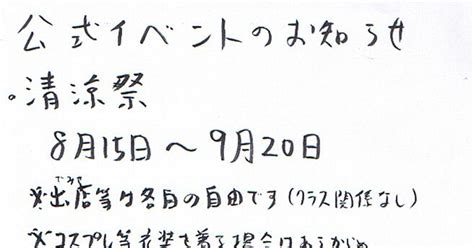 公式イベントのお知らせ
。清涼祭
8月15日〜9月20日
※出店等は各自の自由です(クラス関係なし)
※コスプレ等衣装を着る場合はあらかじめ